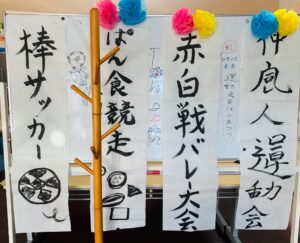 運動会
赤白戦バレー大会
ぱん食競走
棒サッカー